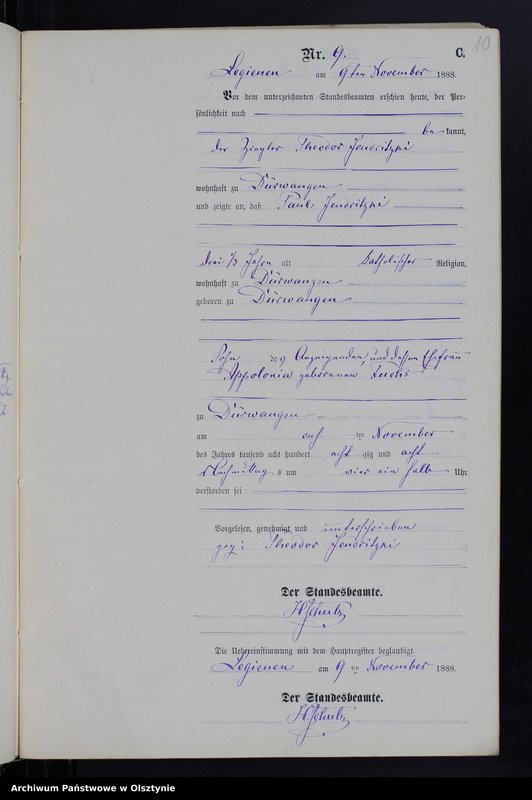 10
Nr. 9. C.
Legienen am 9ten November 1888.
Vor dem unterzeichneten Standesbeamten erschien heute, der Per-
sönlichkeit nach
bekannt,
der Ziegler Theodor Jendritzki
wohnhaft zu Dürwangen
und zeigte an, daß Paul Jendritzki
drei 1/3 Jahre alt katholischer Religion,
wohnhaft zu Dürwangen
geboren zu Dürwangen
Sohn des Anzeigenden, und dessen Ehefrau
Appolonia geborenen Fuchs
zu Dürwangen
am ten November
des Jahres tausend acht hundert achtzig und acht
Nachmittags um vier ein halb Uhr
verstorben sei
Vorgelesen, genehmigt und unterschrieben
gez: Theodor Jendritzki
Der Standesbeamte.
Die Uebereinstimmung mit dem Hauptregister beglaubigt.
Legienen am 9ten November 1888.
Der Standesbeamte.
Archiwum Państwowe w Olsztynie